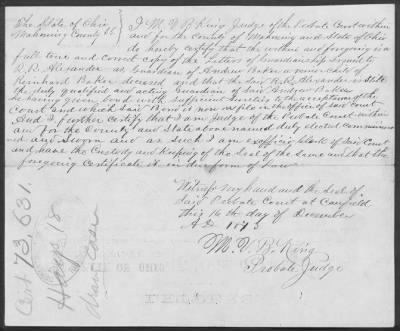 The State of Ohio } I M. V. B. King Judge of the Probate Court within
Mahoning County SS. } and for the County of Mahoning and State of Ohio
do hereby certify that the within and foregoing is a
full true and correct copy of the Letters of Guardianship issued to
R. R. Alexander as Guardian of Andrew Baker a minor child of
Reinhard Baker deceased and that the said R. R. Alexander is still
the duly qualified and acting Guardian of said Andrew Baker
he having given bond with sufficient sureties to the acceptance of the
Court and which said Bond is now on file in the office of said Court
And I further certify that I am Judge of the Probate Court within
and for the County and State above named duly elected commission
ned and sworn and as such I am exofficio clerk of said Court
and have the Custody and keeping of the Seal of the same and that the
foregoing Certificate is in due form of Law
Witness my hand and the Seal of
said Probate Court at Canfield
this 16th day of December
A.D. 1873
M. V. B. King
Probate Judge
Cert 73,631.
18
case